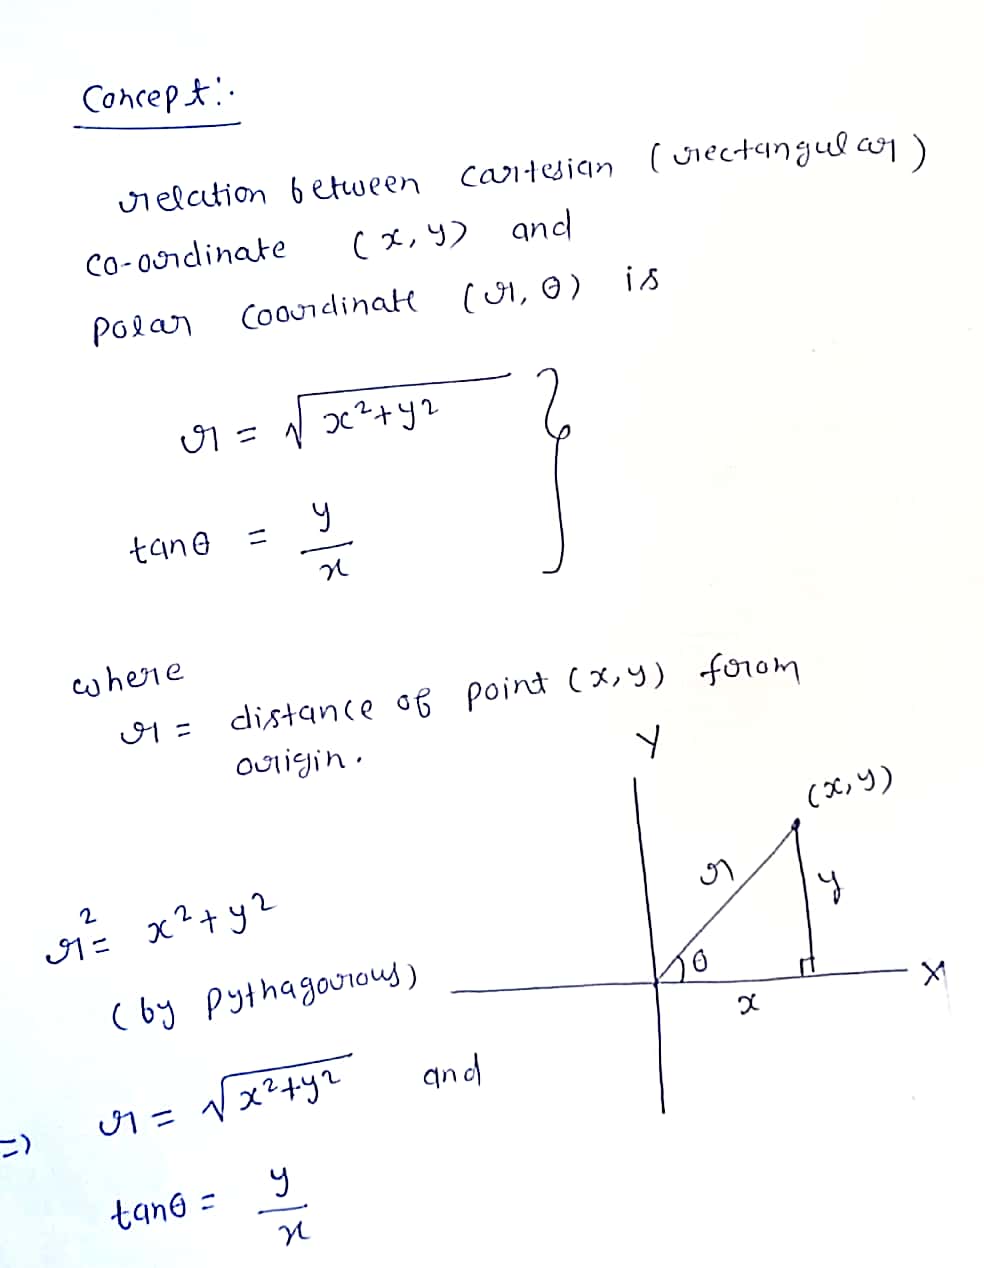 Concept:-
relation between cartesian (rectangular)
co-ordinate (x, y) and
Polar Coordinate (r, θ) is
r = √x²+y² }
tanθ = y/x
where
r = distance of point (x, y) from
origin.
Y
(x, y)
r
y
θ
X
x
r² = x²+y²
(by pythagorous)
=> r = √x²+y² and
tanθ = y/x